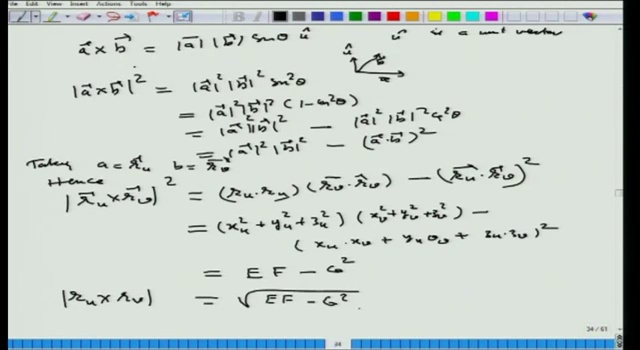 File Edit View Insert Actions Tools Help
a⃗ × b⃗ = |a⃗| |b⃗| sinθ û    û is a unit vector
|a⃗×b⃗|² = |a⃗|² |b⃗|² sin²θ
= |a⃗|² |b⃗|² (1 - cos²θ)
= |a⃗|² |b⃗|² - |a⃗|² |b⃗|² cos²θ
= |a⃗|² |b⃗|² - (a⃗·b⃗)²
Taking a = r⃗ᵤ b = r⃗ᵥ
Hence
|r⃗ᵤ × r⃗ᵥ|² = (rᵤ·rᵤ) (r⃗ᵥ·r⃗ᵥ) - (r⃗ᵤ·r⃗ᵥ)²
= (xᵤ² + yᵤ² + zᵤ²) (xᵥ² + yᵥ² + zᵥ²) -
(xᵤ·xᵥ + yᵤ yᵥ + zᵤ·zᵥ)²
= EF - G²
|rᵤ × rᵥ| = √(EF - G²)
34 / 61
34